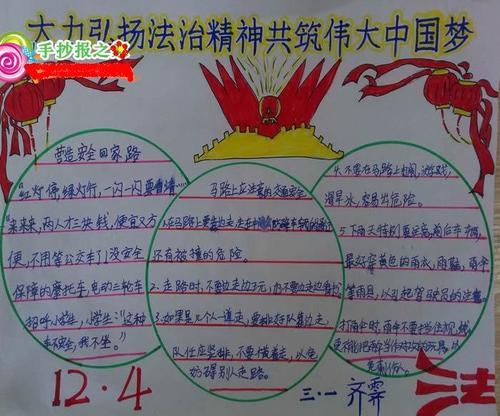 大力弘扬法治精神共筑伟大中国梦
手抄报之
营造安全回家路
"红灯停,绿灯行,一闪一闪要看清……
"来来来,两人才三块钱,便宜又方
便,不用等公交车了"没安全
保障的摩托车,电动三轮车
招呼小学生,小学生:"这种
车不安全,我不坐。"
马路上应注意的交通安全
1.在马路上要靠边走,走在中
还有被撞的危险。
2.走路时,不要边走边玩,也不要边走边看书
3.如果是几个人一道走,要排好队靠边走,
队伍应竖排,不要横着走,以免
妨碍别人走路。
4.不要在马路上
滑旱冰,容易出危险。
5.下雨天特别要
最好穿黄色的雨衣,雨鞋,雨伞
等雨具,以引起驾驶员的注意。
打雨伞时,雨伞不要挡住视线,
12·4
三·一 齐霁
法